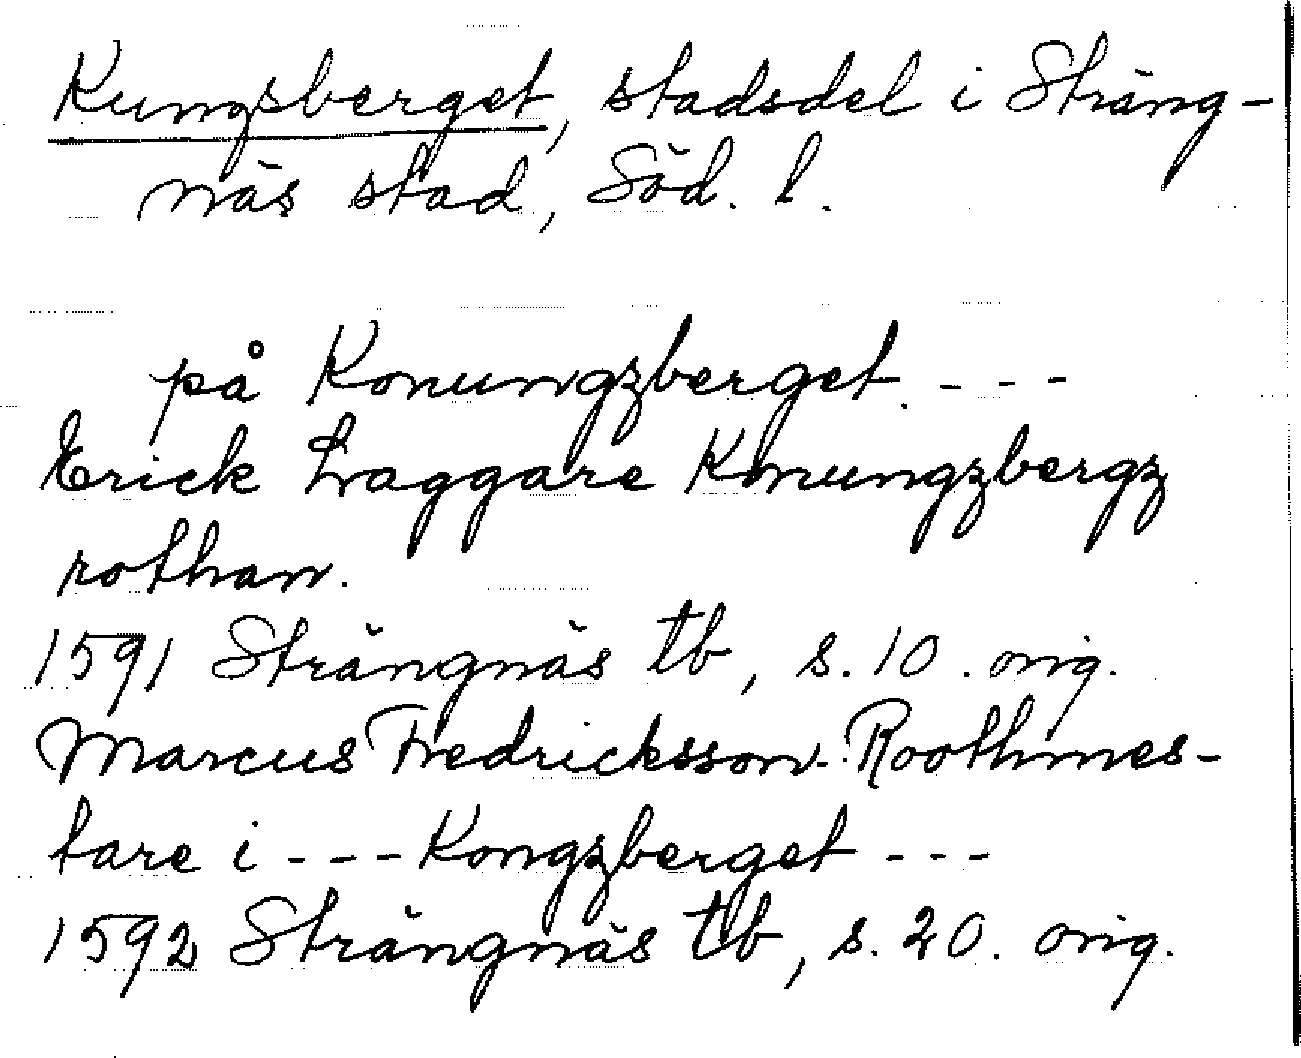 Kungsberget, stadsdel i Sträng-
näs stad, Söd. l.
på Konungzberget. - - -
Erick Laggare Konungzbergz
rothan.
1591 Strängnäs tb, s. 10. orig.
Marcus Fredricksson. Roothmes-
tare i - - - Kongzberget - - -
1592 Strängnäs tb, s. 20. orig.